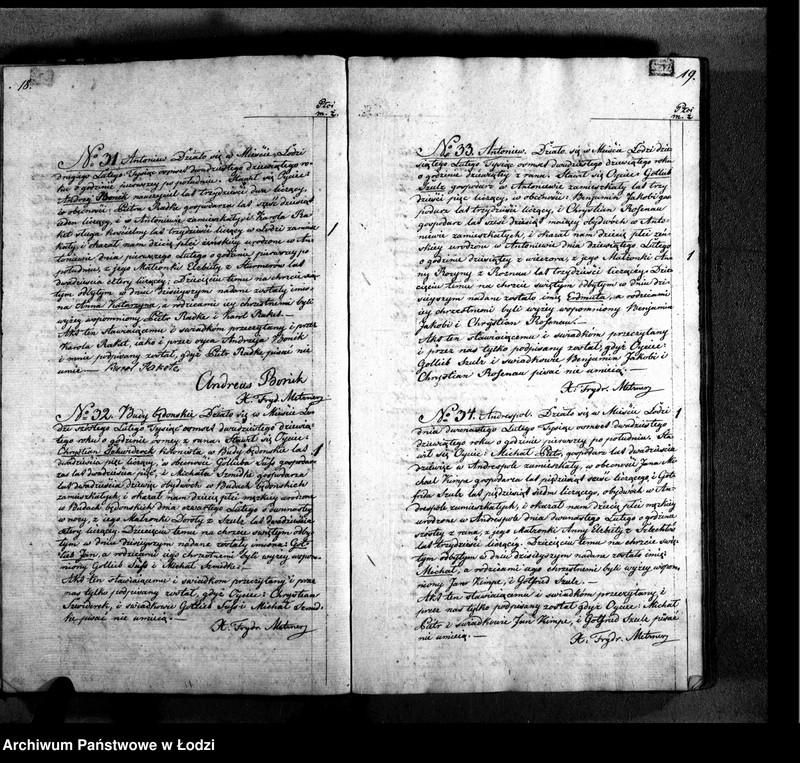 18.
Płci
m. ż.
No 31. Antoniew. Działo się w Mieście Łodzi
drugiego Lutego Tysiąc ośmset dwudziestego dziewiątego ro-
ku o godzinie pierwszej po południu. Stawił się Ojciec:
Andrzej Bonik lat trzydzieści dwa liczący,
w obecności: Piotra Radke gospodarza lat sześćdziesiąt
jeden liczący, i w Antoniewie zamieszkały i Karola Ra-
lat trzydzieści liczący w Łodzi zamiesz-
kały, i okazał nam dziecię płci żeńskiej urodzone w An-
toniewie dnia pierwszego Lutego o godzinie pierwszej po
południu, z jego Małżonki Elżbiety z lat
dwadzieścia cztery liczącej. Dziecięciu temu na chrzcie świę-
tym odbytym w dniu dzisiejszym nadane zostały imio-
na Anna Katarzyna, a rodzicami jej chrzestnemi byli
wyżej wspomniony Piotr Radke i Karol Raket.—
Akt ten stawiającemu i świadkom przeczytany i przez
Karola Raket, jako i przez ojca Andrzeja Bonik
i mnie podpisany został, gdyż Piotr Radke pisać nie
umie.—
Andreas Bonik
X. Fryd. Metzner
No 32. Budy będońskie. Działo się w Mieście Ło-
dzi szóstego Lutego Tysiąc ośmset dwudziestego dziewią-
tego roku o godzinie z rana. Stawił się Ojciec:
Chrystian Schwiderek kolonista, w Budy będońskie lat
dwadzieścia pięć liczący, w obecności Gottliba Juss gospoda-
rza lat dwadzieścia pięć, i Michała Szmidke gospodarza
lat dwadzieścia dziewięć obydwóch w Budach będońskich
zamieszkałych; i okazał nam dziecię płci męzkiej urodzone
w Budach będońskich dnia czwartego Lutego o dwunastej
w nocy, z jego Małżonki Doroty z Szulc lat dwadzieścia
cztery liczącej. Dziecięciu temu na chrzcie świętym odby-
tym w dniu dzisiejszym nadane zostały imiona: Got-
lieb Jan, a rodzicami jego chrzestnemi byli wyżej wspom-
niony Gottlieb Juss i Michał Szmidke.—
Akt ten stawiającemu i świadkom przeczytany i przez
nas tylko podpisany został, gdyż Ojciec: Chrystian
Szwiderek, i świadkowie Gottlieb Juss i Michał Szmid-
ke pisać nie umieją.—
X. Frydr. Metzner
19.
Płci
m. ż.
No 33. Antoniew. Działo się w Mieście Łodzi dzie-
siątego Lutego Tysiąc ośmset dwudziestego dziewiątego roku
o godzinie dziewiątej z rana. Stawił się Ojciec: Gottlib
Szulc gospodarz w Antoniewie zamieszkały lat trzy-
dzieści pięć liczący, w obecności: Benjamina Jakobi gos-
podarza lat trzydzieści liczący, i Chrystian Rosenau
gospodarz lat sześćdziesiąt mający obydwóch w Anto-
niewie zamieszkałych, i okazał nam dziecię płci żeń-
skiej urodzone w Antoniewie dnia dziewiątego Lutego
o godzinie dziewiątej z wieczora, z jego Małżonki An-
ny Rozyny z Rosnau lat trzydzieści liczącej. Dzie-
cięciu temu na chrzcie świętym odbytym w dniu dzi-
siejszym nadane zostało imię Erdmuta, a rodzicami
jej chrzestnemi byli wyżej wspomniony Benjamin
Jakobi i Chrystian Rosenau.—
Akt ten stawiającemu i świadkom przeczytany
i przez nas tylko podpisany został, gdyż Ojciec:
Gottlieb Szulc i świadkowie Benjamin Jakobi i
Chrystian Rosenau pisać nie umieją.—
X. Frydr. Metzner
No 34. Andrespol. Działo się w Mieście Łodzi
dnia dwunastego Lutego Tysiąc ośmset dwudziestego
dziewiątego roku o godzinie pierwszej po południu. Sta-
wił się Ojciec: Michał Pietz, gospodarz lat dwadzieścia
dziewięć w Andrespolu zamieszkały, w obecności Jana Mi-
chael Kimpe gospodarza lat pięćdziesiąt sześć liczącego, i Got-
frida Szulc lat pięćdziesiąt siedm liczącego, obydwóch w An-
drespolu zamieszkałych, i okazał nam dziecię płci męzkiej
urodzone w Andrespolu dnia dwunastego Lutego o godzinie
szóstej z rana, z jego małżonki Anny Elżbiety z
lat trzydzieści liczącej. Dziecięciu temu na chrzcie świę-
tym odbytym w dniu dzisiejszym nadane zostało imię:
Michał, a rodzicami jego chrzestnemi byli wyżej wspom-
niony Jan Kimpe, i Gotfried Szulc.—
Akt ten stawiającemu i świadkom przeczytany, i
przez nas tylko podpisany został gdyż Ojciec: Michał
Pietz i świadkowie Jan Kimpe, i Gotfried Szulc pisać
nie umieją.—
X. Frydr. Metzner
Archiwum Państwowe w Łodzi